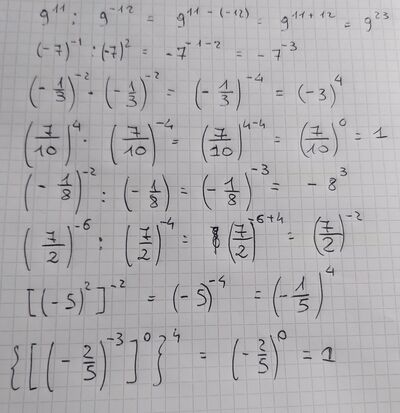 9^11 : 9^-12 = 9^11-(-12) = 9^11+12 = 9^23
(-7)^-1 : (-7)^2 = -7^-1-2 = -7^-3
(-1/3)^-2 · (-1/3)^-2 = (-1/3)^-4 = (-3)^4
(7/10)^4 · (7/10)^-4 = (7/10)^4-4 = (7/10)^0 = 1
(-1/8)^-2 : (-1/8) = (-1/8)^-3 = -8^3
(7/2)^-6 : (7/2)^-4 = (7/2)^-6+4 = (7/2)^-2
[(-5)^2]^-2 = (-5)^-4 = (-1/5)^4
{[(-2/5)^-3]^0}^4 = (-2/5)^0 = 1